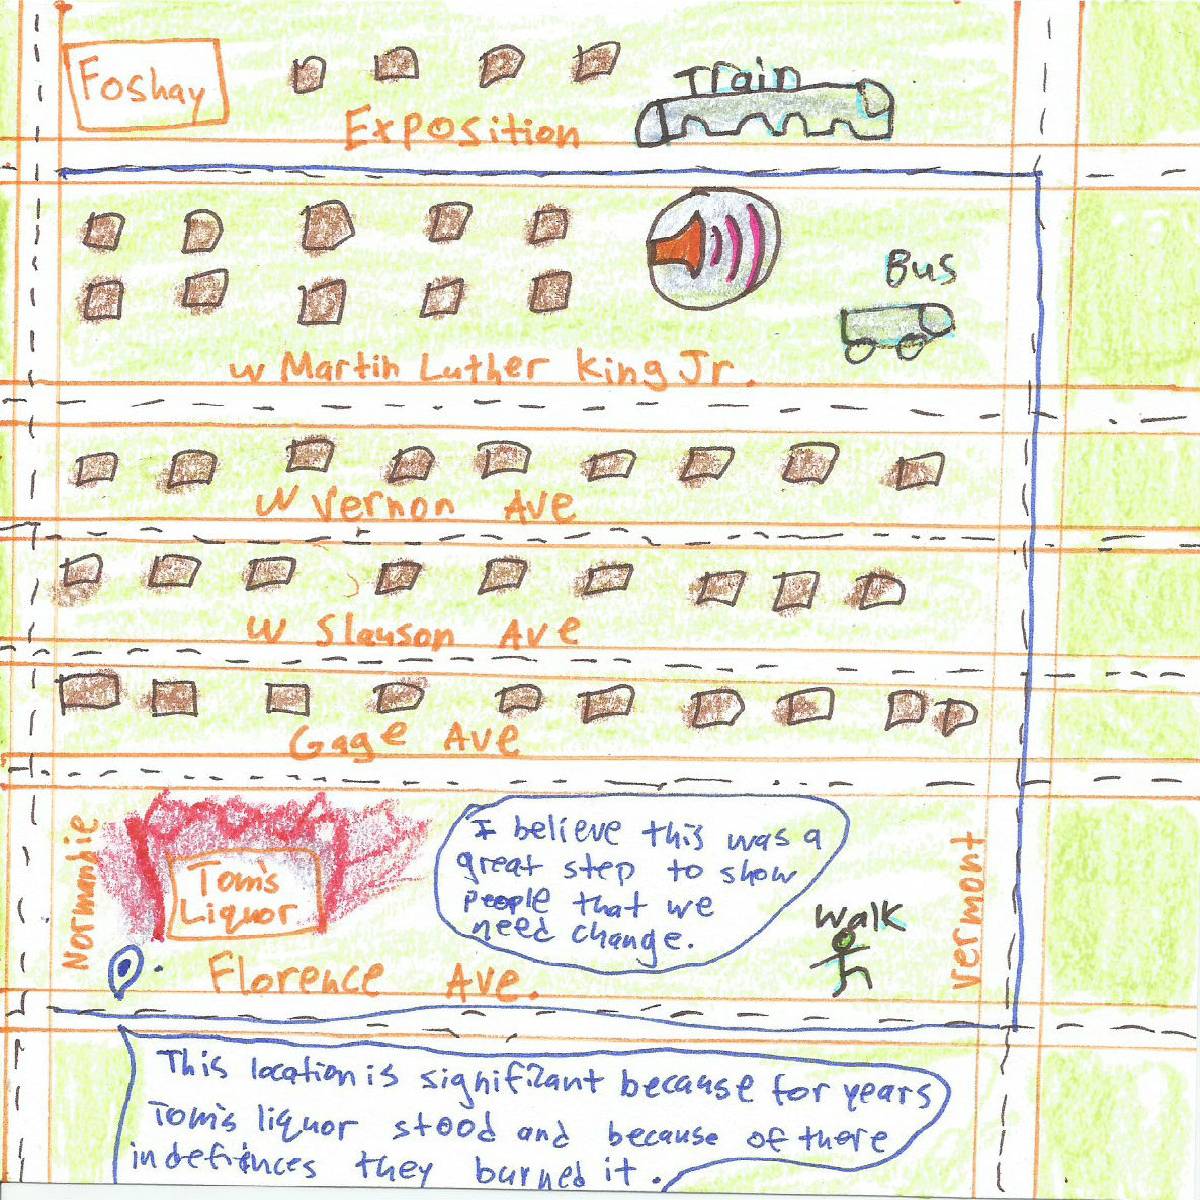 Foshay
Train
Exposition
Bus
W Martin Luther King Jr.
W Vernon Ave
W Slauson Ave
Gage Ave
Normandie
Tom's
Liquor
I believe this was a
great step to show
people that we
need change.
Walk
Vermont
Florence Ave.
This location is significant because for years
Tom's liquor stood and because of there
indefrinces they burned it.